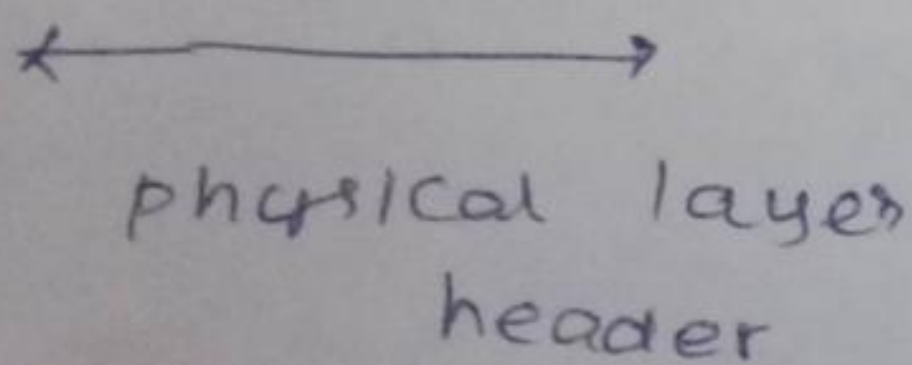 physical layer
header